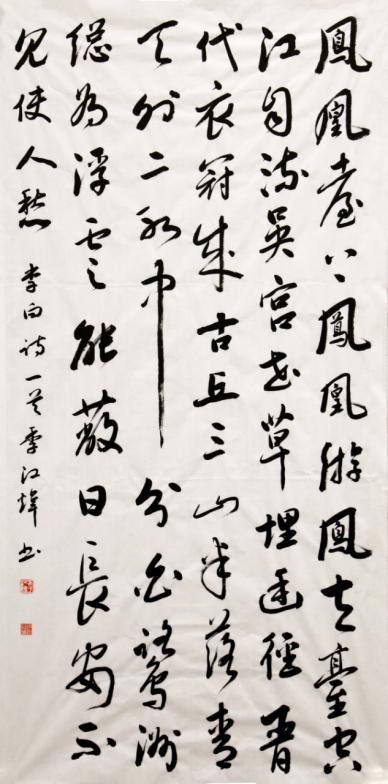 鳳凰臺上鳳凰游鳳去臺空
江自流吳宮花草埋幽徑晉
代衣冠成古丘三山半落青
天外二水中分白鷺洲
總為浮雲能蔽日長安不
見使人愁 李白诗一首 季江煒书